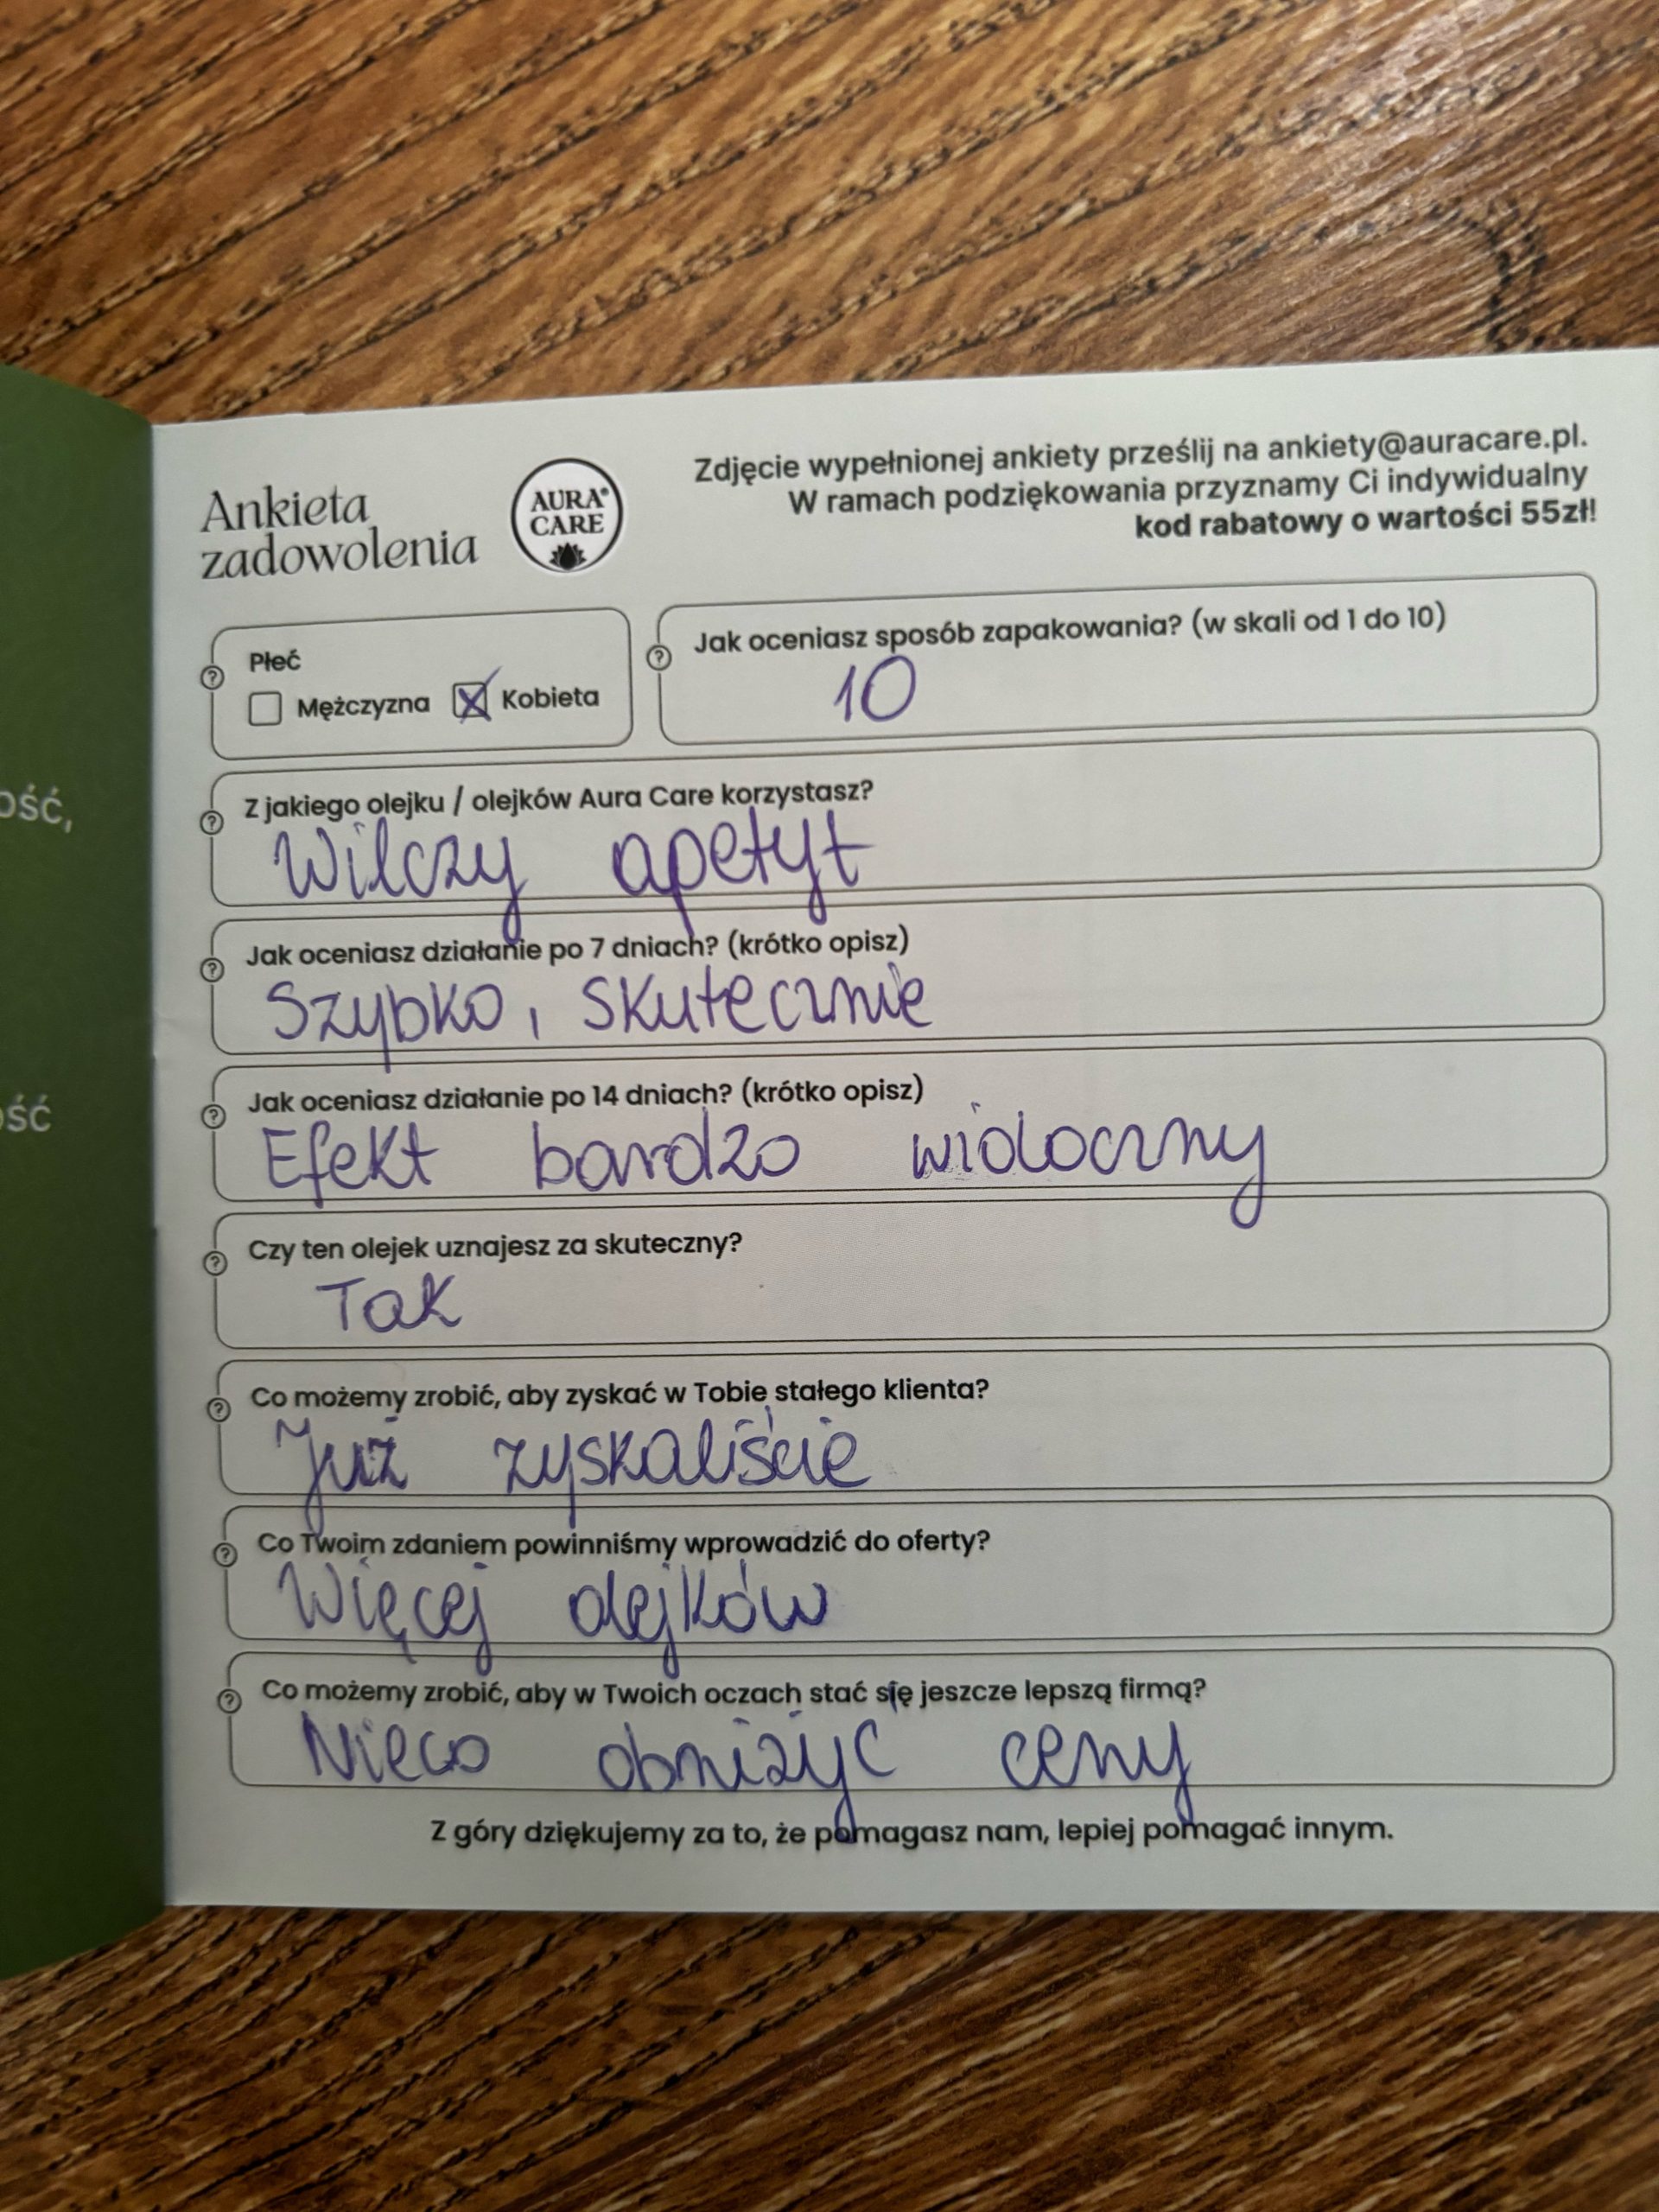 Ankieta
zadowolenia
AURA
CARE
Zdjęcie wypełnionej ankiety prześlij na ankiety@auracare.pl.
W ramach podziękowania przyznamy Ci indywidualny
kod rabatowy o wartości 55zł!
Płeć
Mężczyzna Kobieta
Jak oceniasz sposób zapakowania? (w skali od 1 do 10)
10
Z jakiego olejku / olejków Aura Care korzystasz?
Wilczy apetyt
Jak oceniasz działanie po 7 dniach? (krótko opisz)
Szybko, skutecznie
Jak oceniasz działanie po 14 dniach? (krótko opisz)
Efekt bardzo widoczny
Czy ten olejek uznajesz za skuteczny?
Tak
Co możemy zrobić, aby zyskać w Tobie stałego klienta?
Już zyskaliście
Co Twoim zdaniem powinniśmy wprowadzić do oferty?
Więcej olejków
Co możemy zrobić, aby w Twoich oczach stać się jeszcze lepszą firmą?
Nieco obniżyć ceny
Z góry dziękujemy za to, że pomagasz nam, lepiej pomagać innym.